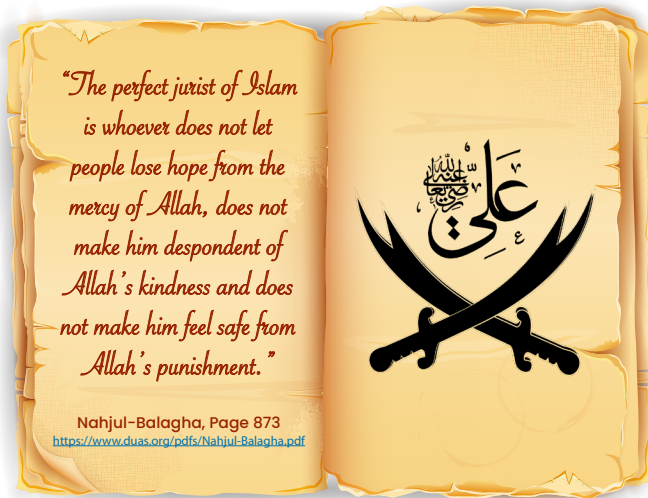 “The perfect jurist of Islam
is whoever does not let
people lose hope from the
mercy of Allah, does not
make him despondent of
Allah’s kindness and does
not make him feel safe from
Allah’s punishment.”
Nahjul-Balagha, Page 873
https://www.duas.org/pdfs/Nahjul-Balagha.pdf
عَلِيّ
رضي الله تعالى عنه